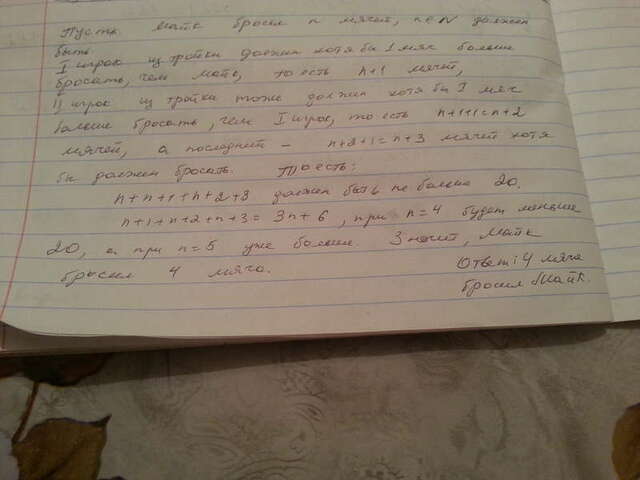 Пусть Майк бросил n мячей, n∈N должен
быть
I игрок из тройки должен хотя бы 1 мяч больше
бросать, чем Майк, то есть n+1 мячей,
II игрок из тройки тоже должен хотя бы 1 мяч
больше бросать, чем I игрок, то есть n+1+1=n+2
мячей, а последний - n+2+1=n+3 мячей хотя
бы должен бросать. То есть:
n+n+1+n+2+8 должен быть не больше 20.
n+1+n+2+n+3=3n+6, при n=4 будет меньше
20, а при n=5 уже больше. Значит, Майк
бросил 4 мяча.
Ответ: 4 мяча
бросил Майк.